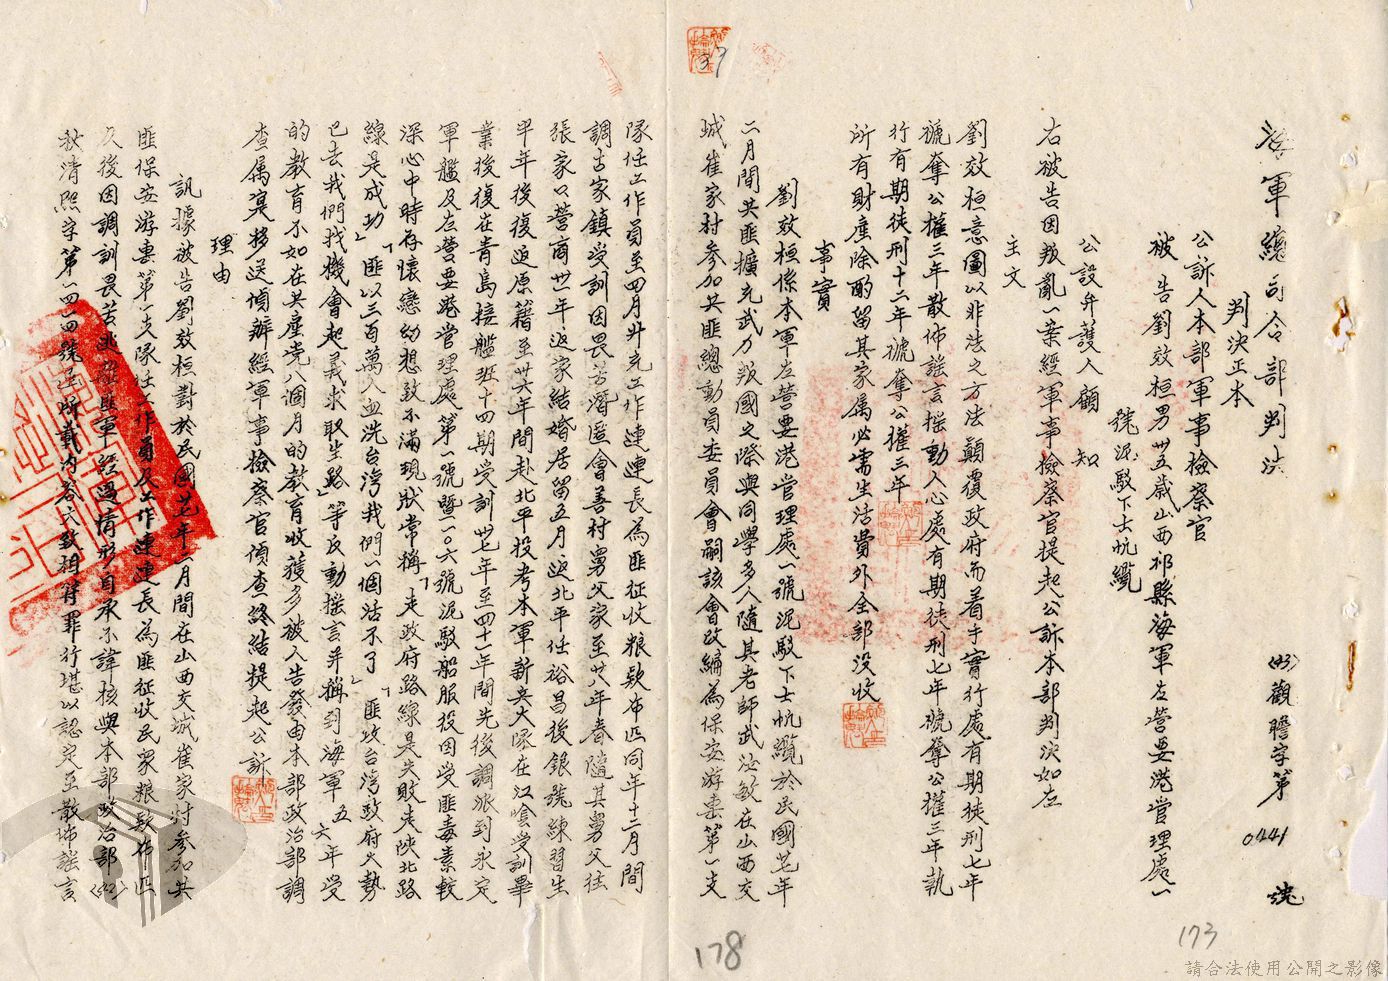 海軍總司令部判決
(43)觀瞻字第0441號
判決正本
公訴人本部軍事檢察官
被告劉效桓男卅五歲山西祁縣海軍左營要港管理處一
號泥駁下士帆纜
公設弁護人顧知
右被告因叛亂一案經軍事檢察官提起公訴本部判決如左
主文
劉效桓意圖以非法之方法顛覆政府而着手實行處有期徒刑七年
褫奪公權三年散佈謠言搖動人心處有期徒刑七年褫奪公權三年執
行有期徒刑十二年褫奪公權三年
所有財產除酌留其家属必需生活費外全部没收
事實
劉效桓係本軍左營要港管理處一號泥駁下士帆纜於民國廿七年
二月間共匪擴充武力叛國之際與同學多人隨其老師武法敏在山西交
城崔家村參加共匪總動員委員會嗣該會改編為保安游擊第一支
隊任工作員至四月升充工作連連長為匪征收粮欵布匹同年十二月間
調古家鎮受訓因畏苦潛匿會善村舅父家至廿八年春隨其舅父往
張家口營商卅一年返家結婚居留五月返北平任裕昌後銀號練習生
半年後復返原籍至卅六年間赴北平投考本軍新兵大隊在江陰受訓畢
業後復在青島接艦班十四期受訓卅七年至四十一年間先後調派到永定
軍艦及左營要港管理處第一號暨一〇六號泥駁船服役因受匪毒素較
深心中時存懷戀幼想致不滿現狀常稱「走政府路線是失敗走陝北路
線是成功」「匪以三百萬人血洗台灣我們一個活不了」「匪攻台灣政府大勢
已去我們找機會起義求取生路」等反動搖言并稱到海軍五六年受
的教育不如在共產党八個月的教育收獲多被人告發由本部政治部調
查属實移送偵辦經軍事檢察官偵查終結提起公訴
理由
訊據被告劉效桓對於民國廿七年二月間在山西交城崔家村參加共
匪保安游擊第一支隊任工作員及工作連連長為匪征收民眾粮欵布匹
久後因調訓畏苦逃離匪軍經過情形自承不諱核與本部政治部(42)
秋清熙字第一四四號函所載內容大致相符罪行堪以認定至散佈謠言
37
178
173
請合法使用公開之影像